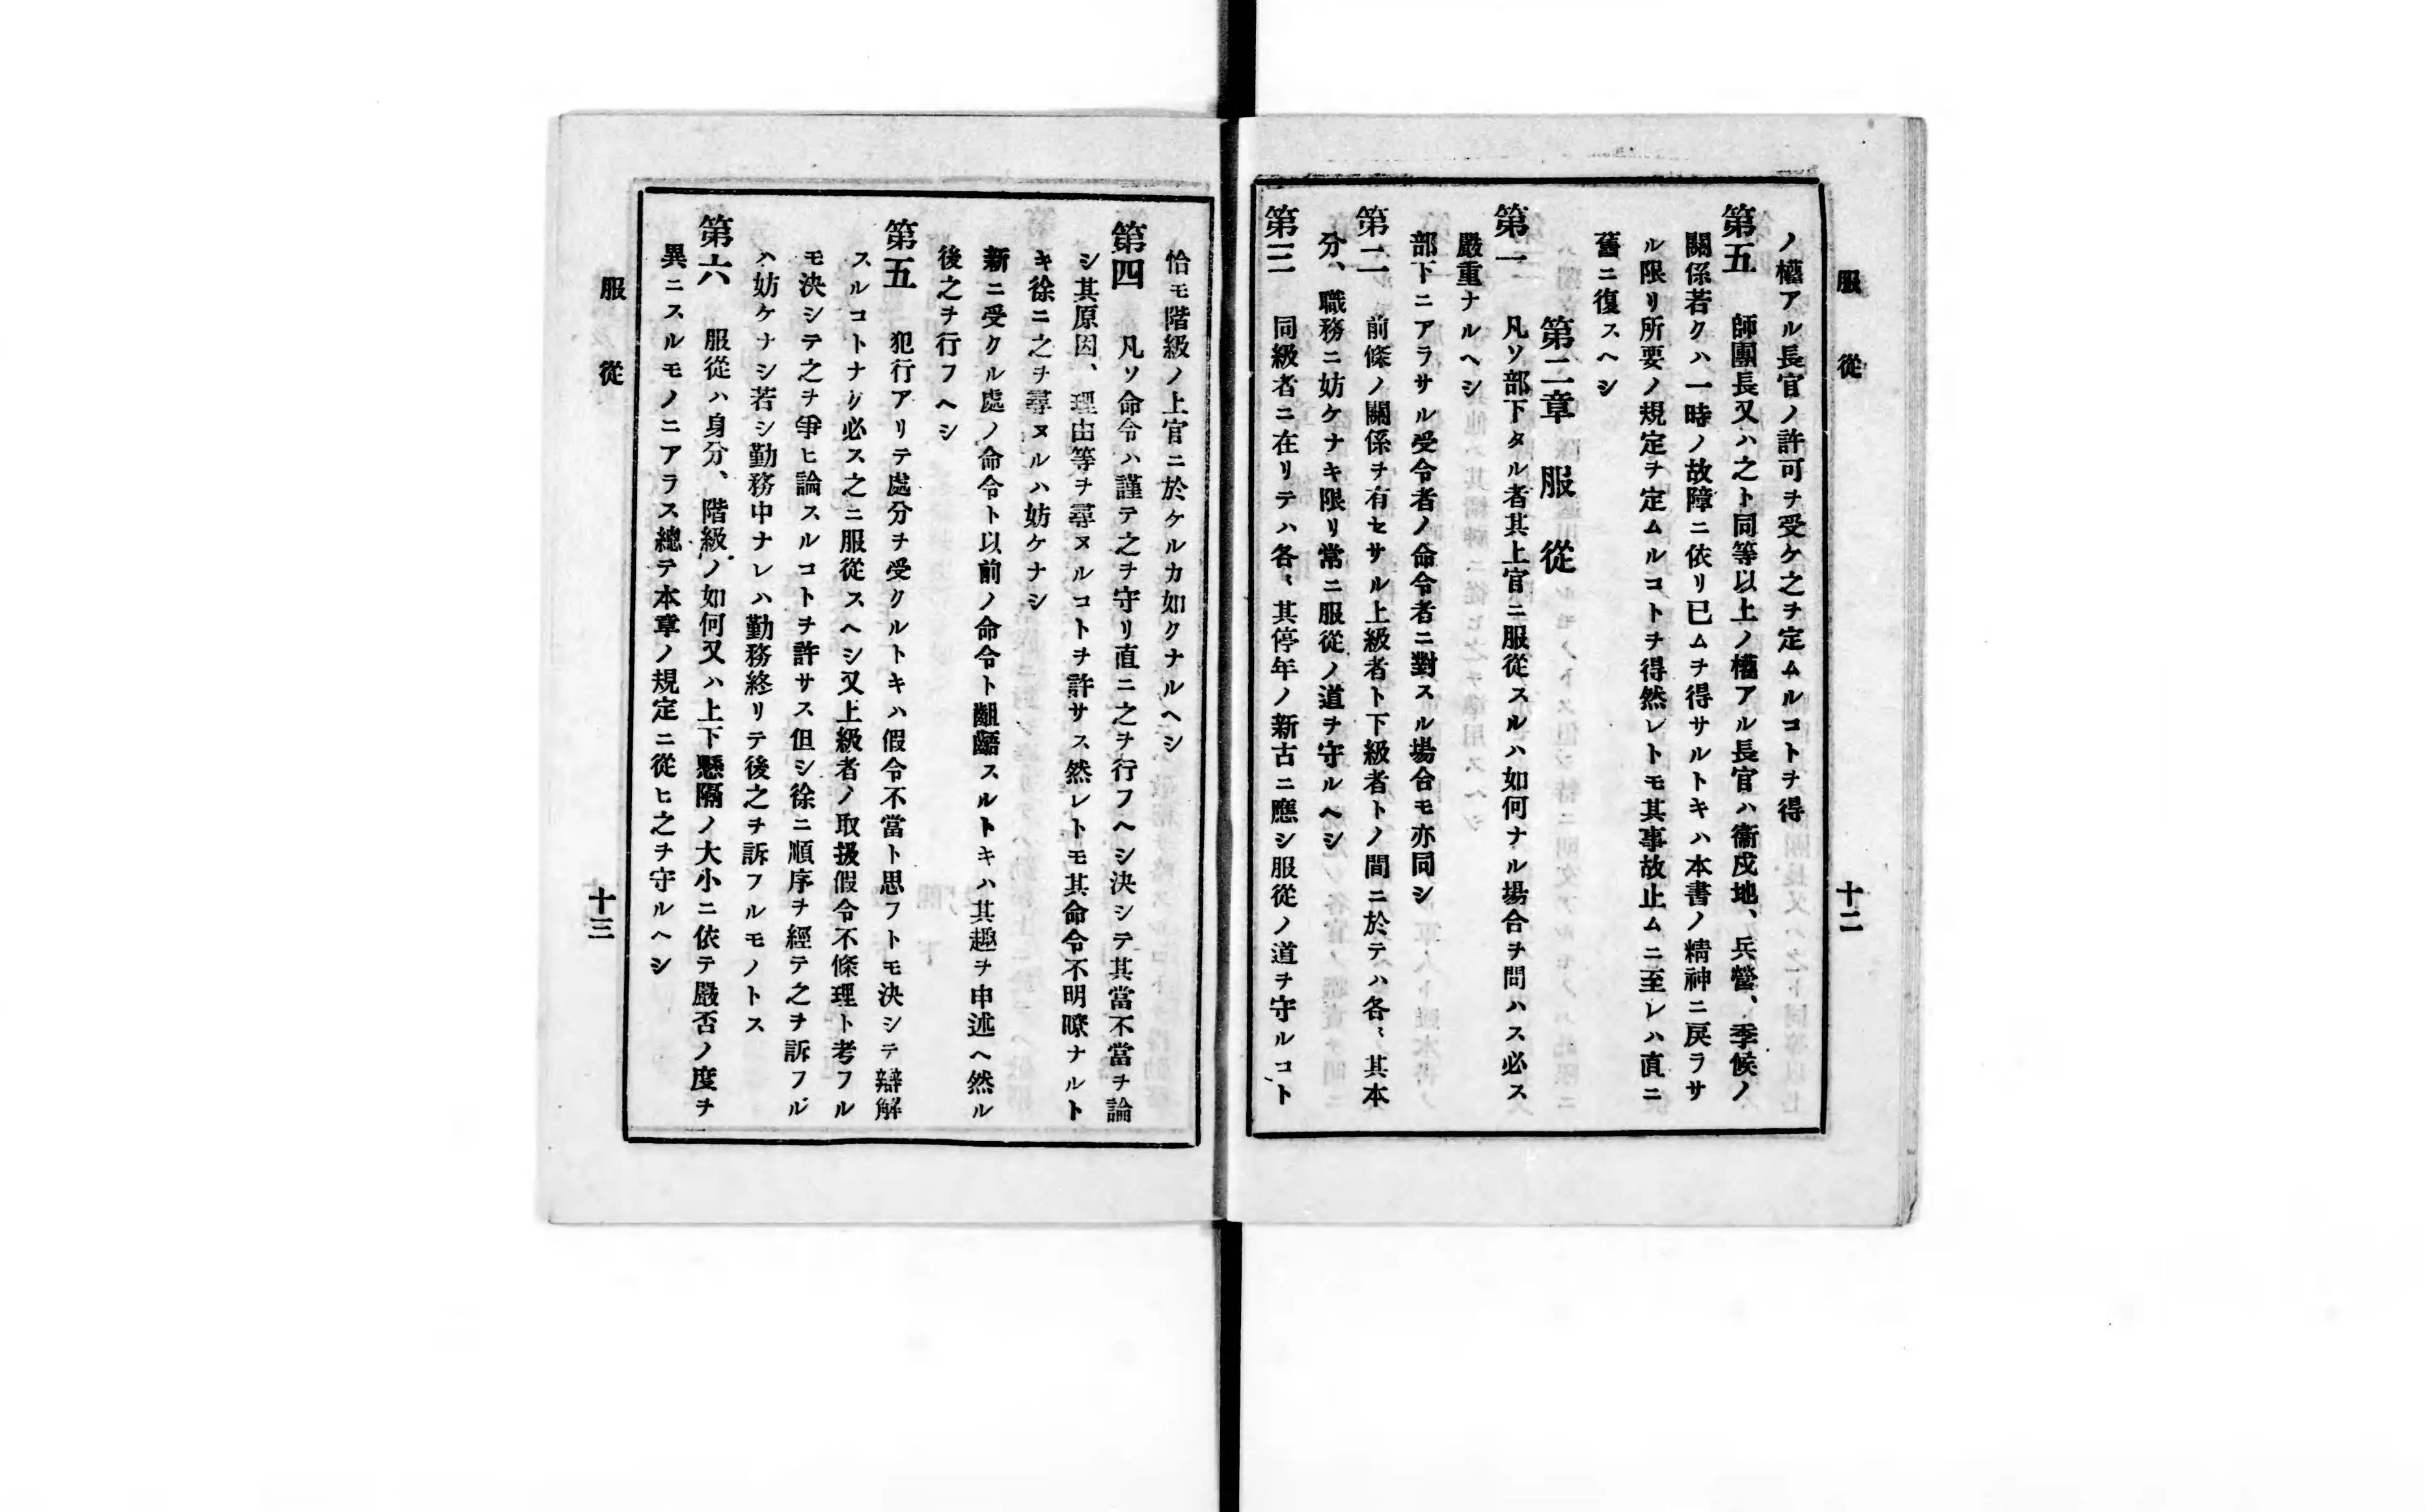 服從
十二
ノ權アル長官ノ許可ヲ受ケ之ヲ定ムルコトヲ得
第五 師團長又ハ之ト同等以上ノ權アル長官ハ衞戍地、兵營、季候ノ
關係若クハ一時ノ故障ニ依リ已ムヲ得サルトキハ本書ノ精神ニ戾ラサ
ル限リ所要ノ規定ヲ定ムルコトヲ得然レトモ其事故止ムニ至レハ直ニ
舊ニ復スヘシ
第二章 服從
第一 凡ソ部下タル者其上官ニ服從スルハ如何ナル場合ヲ問ハス必ス
嚴重ナルヘシ
部下ニアラサル受令者ノ命令者ニ對スル場合モ亦同シ
第二 前條ノ關係ヲ有セサル上級者ト下級者トノ間ニ於テハ各〻其本
分、職務ニ妨ケナキ限リ常ニ服從ノ道ヲ守ルヘシ
第三 同級者ニ在リテハ各〻其停年ノ新古ニ應シ服從ノ道ヲ守ルコト
恰モ階級ノ上官ニ於ケルカ如クナルヘシ
第四 凡ソ命令ハ謹テ之ヲ守リ直ニ之ヲ行フヘシ決シテ其當不當ヲ論
シ其原因、理由等ヲ尋ヌルコトヲ許サス然レトモ其命令不明瞭ナルト
キ徐ニ之ヲ尋ヌルハ妨ケナシ
新ニ受クル處ノ命令ト以前ノ命令ト齟齬スルトキハ其趣ヲ申述ヘ然ル
後之ヲ行フヘシ
第五 犯行アリテ處分ヲ受クルトキハ假令不當ト思フトモ決シテ辯解
スルコトナク必ス之ニ服從スヘシ又上級者ノ取扱假令不條理ト考フル
モ決シテ之ヲ爭ヒ論スルコトヲ許サス但シ徐ニ順序ヲ經テ之ヲ訴フル
ハ妨ケナシ若シ勤務中ナレハ勤務終リテ後之ヲ訴フルモノトス
第六 服從ハ身分、階級ノ如何又ハ上下懸隔ノ大小ニ依テ嚴否ノ度ヲ
異ニスルモノニアラス總テ本章ノ規定ニ從ヒ之ヲ守ルヘシ
服從
十三